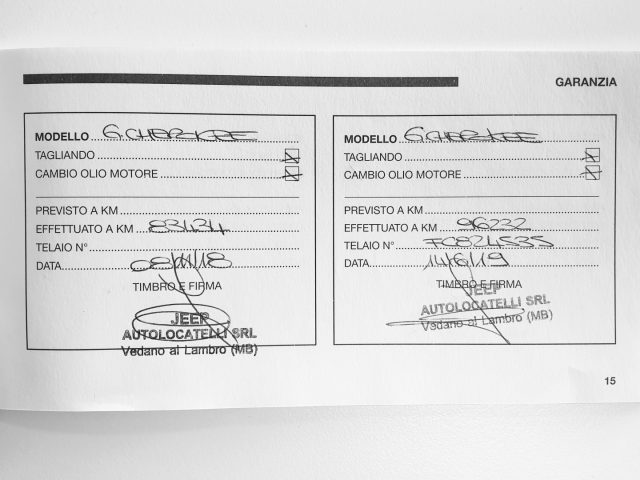 GARANZIA
MODELLO G. CHEROKEE
TAGLIANDO
CAMBIO OLIO MOTORE
PREVISTO A KM
EFFETTUATO A KM 83434
TELAIO N°
DATA 08/11/18
TIMBRO E FIRMA
JEEP
AUTOLOCATELLI SRL
Vedano al Lambro (MB)
MODELLO G CHEROKEE
TAGLIANDO
CAMBIO OLIO MOTORE
PREVISTO A KM
EFFETTUATO A KM 96232
TELAIO N° FC824535
DATA 14/6/19
TIMBRO E FIRMA
JEEP
AUTOLOCATELLI SRL
Vedano al Lambro (MB)
15